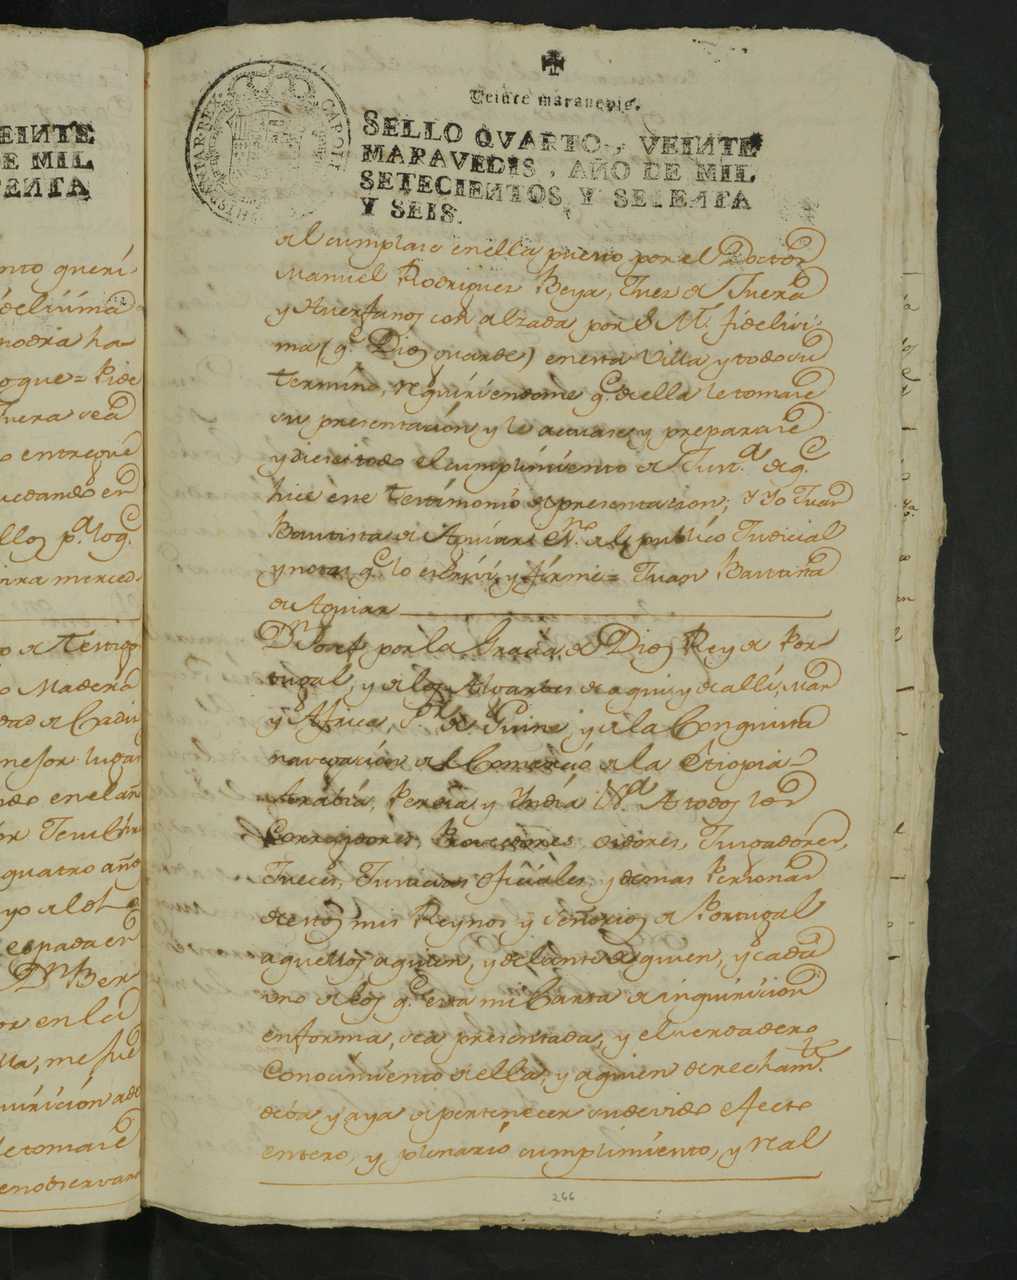 Veinte maravedis.
SELLO QVARTO, VEINTE
MARAVEDIS, AÑO DE MIL
SETECIENTOS Y SETENTA
Y SEIS.
el cumplase enella puesto por el Doctor
Manuel Rodriguez Beya, Juez de fuera
y Huerfanos con alzada, por S. M. fidelisi-
ma (q.e Dios guarde) enesta Villa y todo su
termino, requiriendome q.e de ella le tomase
su presentacion y le autuase y preparase
y diese todo el cumplimiento de Just.a de q.e
hice este testimonio de presentacion; Y Yo Juan
Bautista de Aguiar es.no del publico Judicial
y notas q.e lo escrivi, y firmé = Juan Bautista
de Aguiar
D.n Josef por la Gracia de Dios Rey de Por-
tugal, y de los Algarbes de aqui y de alli, Mar
y Africa, S.r de Guine, y de la Conquista
navegacion del Comercio de la Etiopia
Arabia, Persia y Yndia &.a A todos los
Corregidores, Proveedores oidores, Juzgadores,
Jueces, Justicias oficiales, y demas Personas
de estos mis Reynos y Señorios de Portugal
aquellos aquien, y delante de quien, y a cada
uno de los q.e esta mi Carta de inquiricion
enforma, sea presentada, y el verdadero
Conocimiento de ella, y aquien derecham.te
deva y aya de pertenecer su devido efecto
entero, y plenario cumplimiento, y Real
266